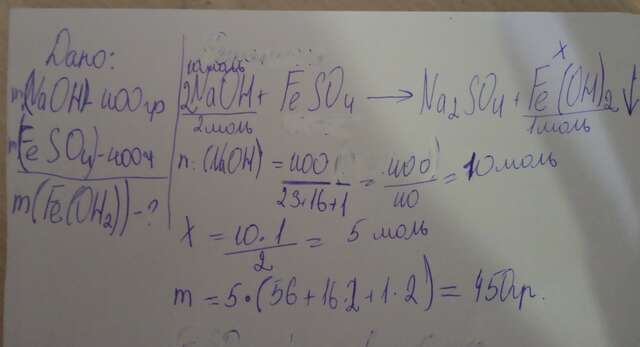 Дано:
m(NaOH)-400гр
m(FeSO4)-400г
m(Fe(OH2))-?
x
2NaOH + FeSO4 → Na2SO4 + Fe(OH)2↓
2моль 1моль
n (NaOH) = 400 / 23+16+1 = 400 / 40 = 10моль
x = 10·1 / 2 = 5 моль
m = 5·(56+16·2+1·2) = 450гр.